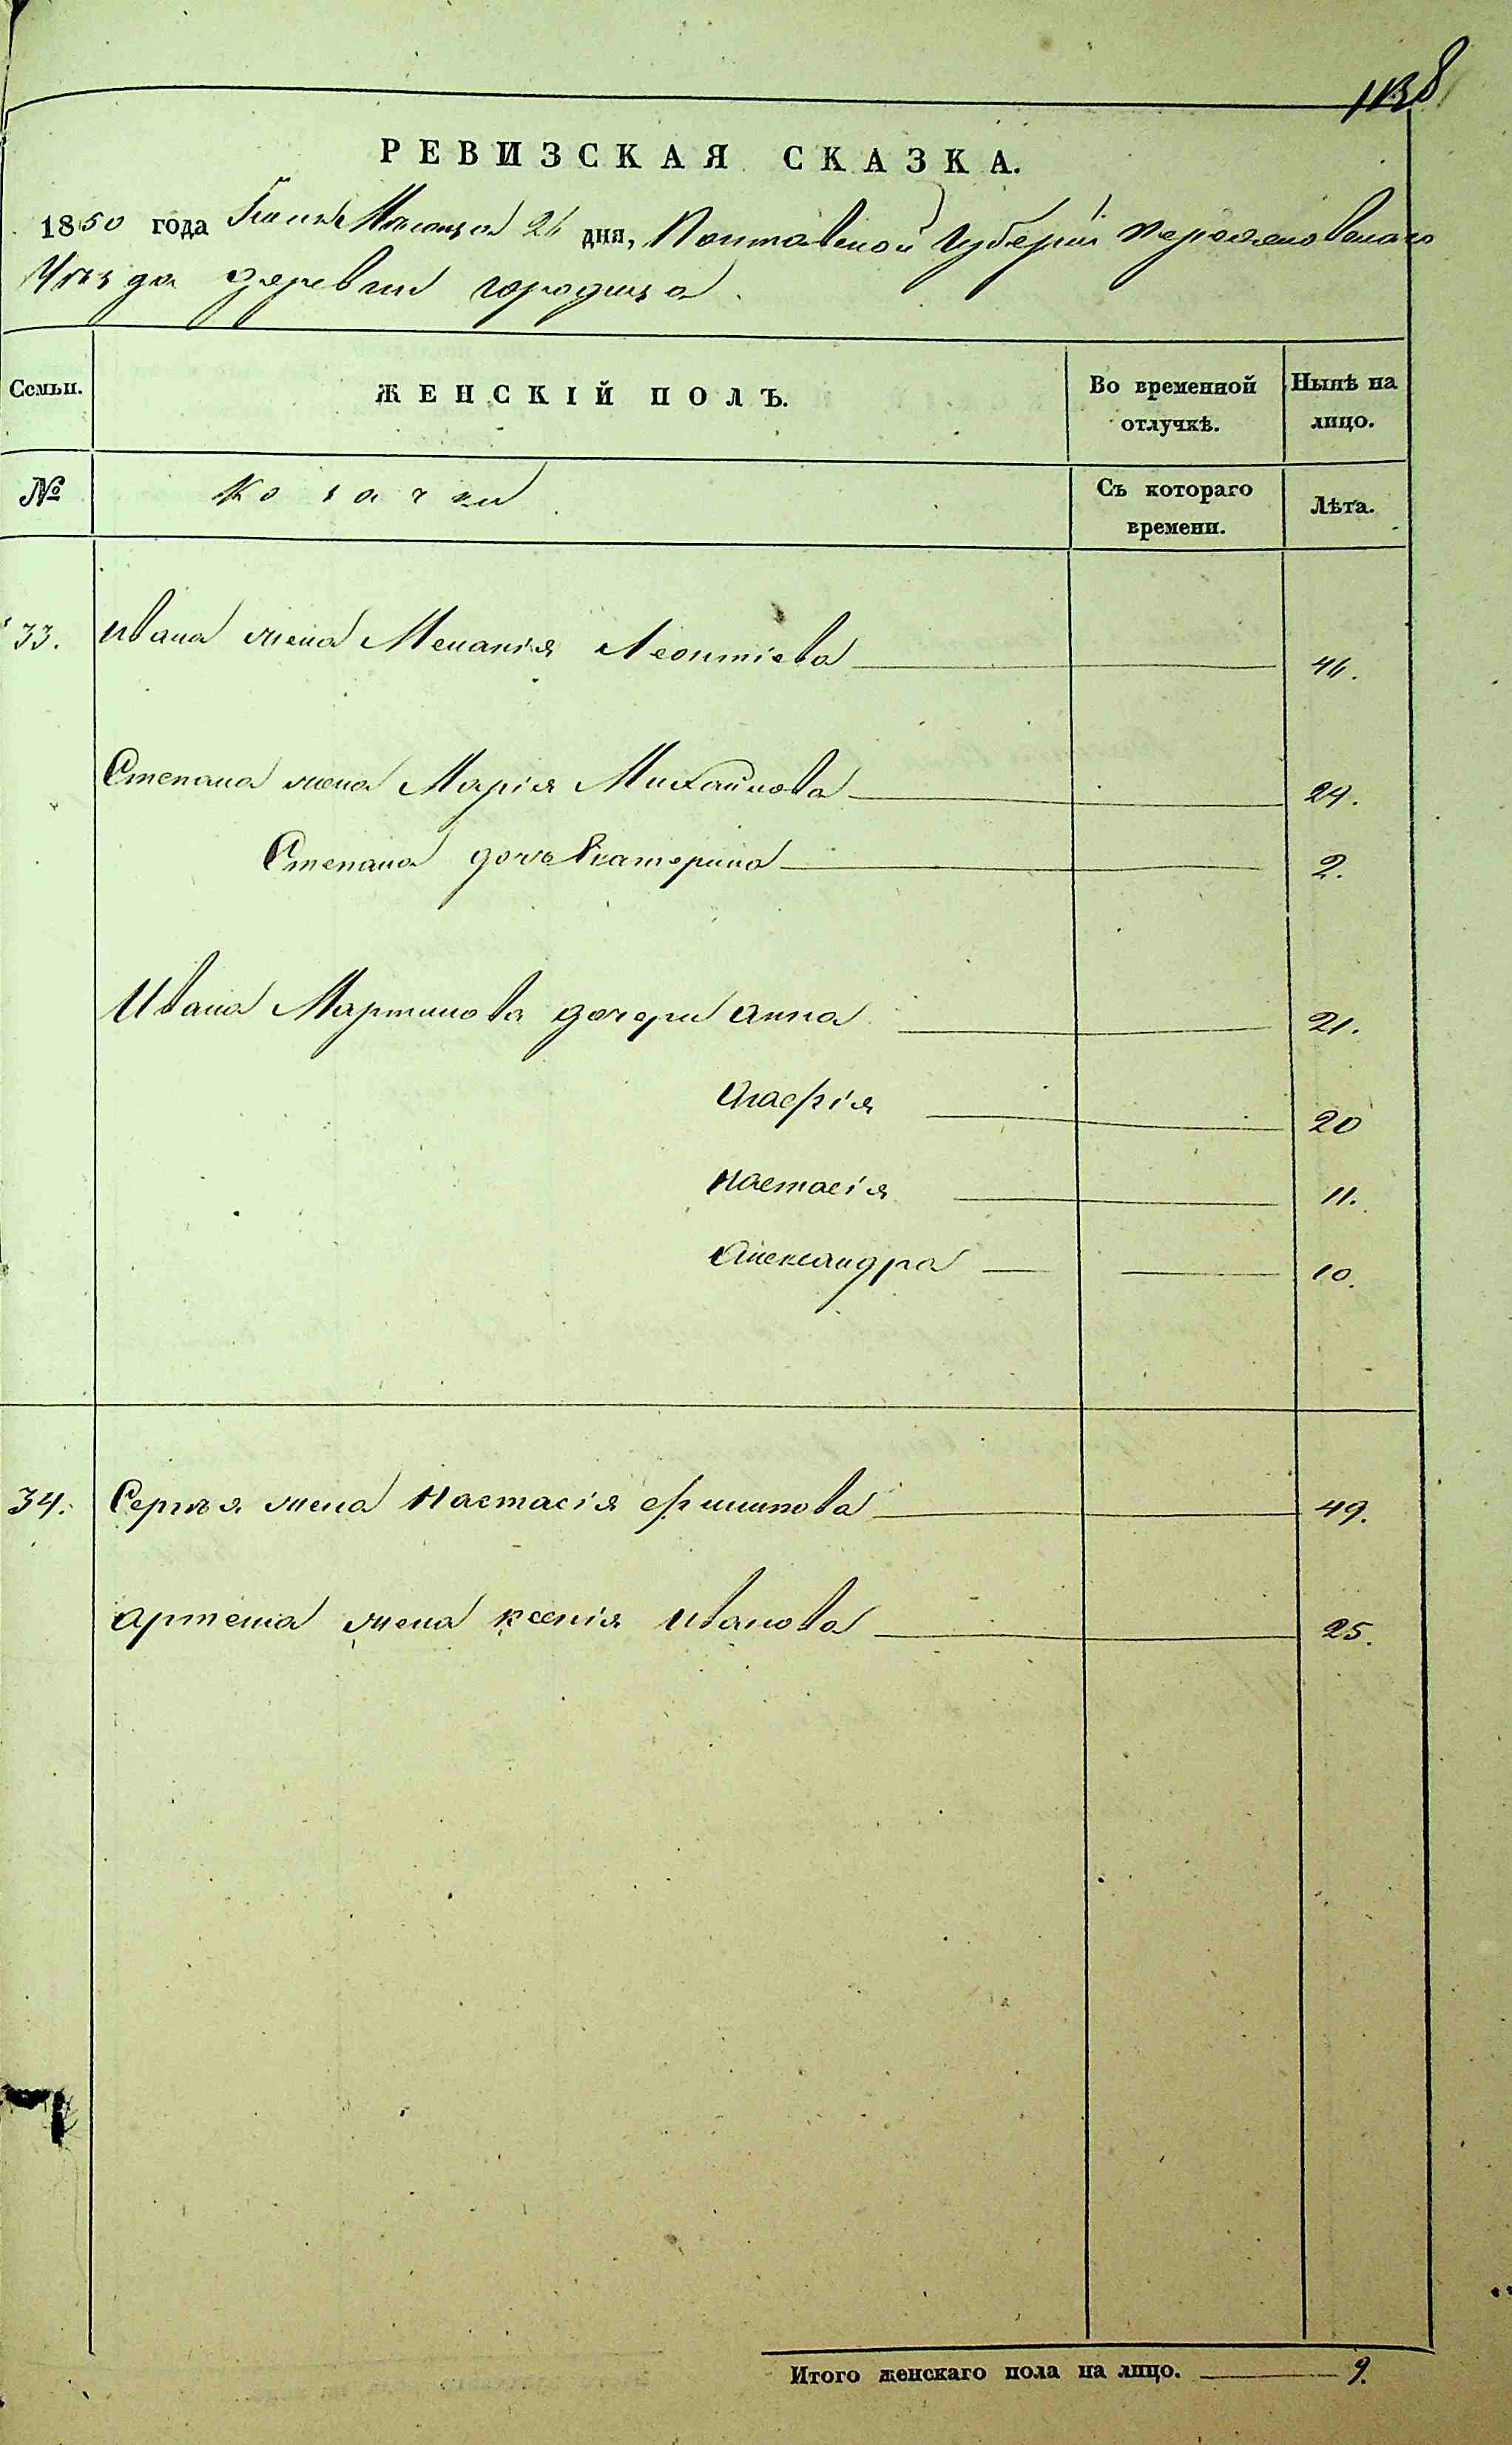 1138
РЕВИЗСКАЯ СКАЗКА.
1850 года Мѣсяца дня, Полтавской Губерніи Переяславскаго
Уѣзда деревни городища
Семьи. ЖЕНСКІЙ ПОЛЪ. Во временной отлучкѣ. Нынѣ на лицо.
№ Козачки Съ котораго времени. Лѣта.
33. Ивана жена Меланія Леонтіева
Степана жена Марія Михайлова 24.
Степана дочь Екатерина 2.
Ивана Мартинова дочери Анна 21.
Агафія 20
Настасія 11.
Александра 10.
34. Сергѣя жена Настасія Филипова 49.
Артема жена Ксенія Иванова 25.
Итого женскаго пола на лицо. 9.